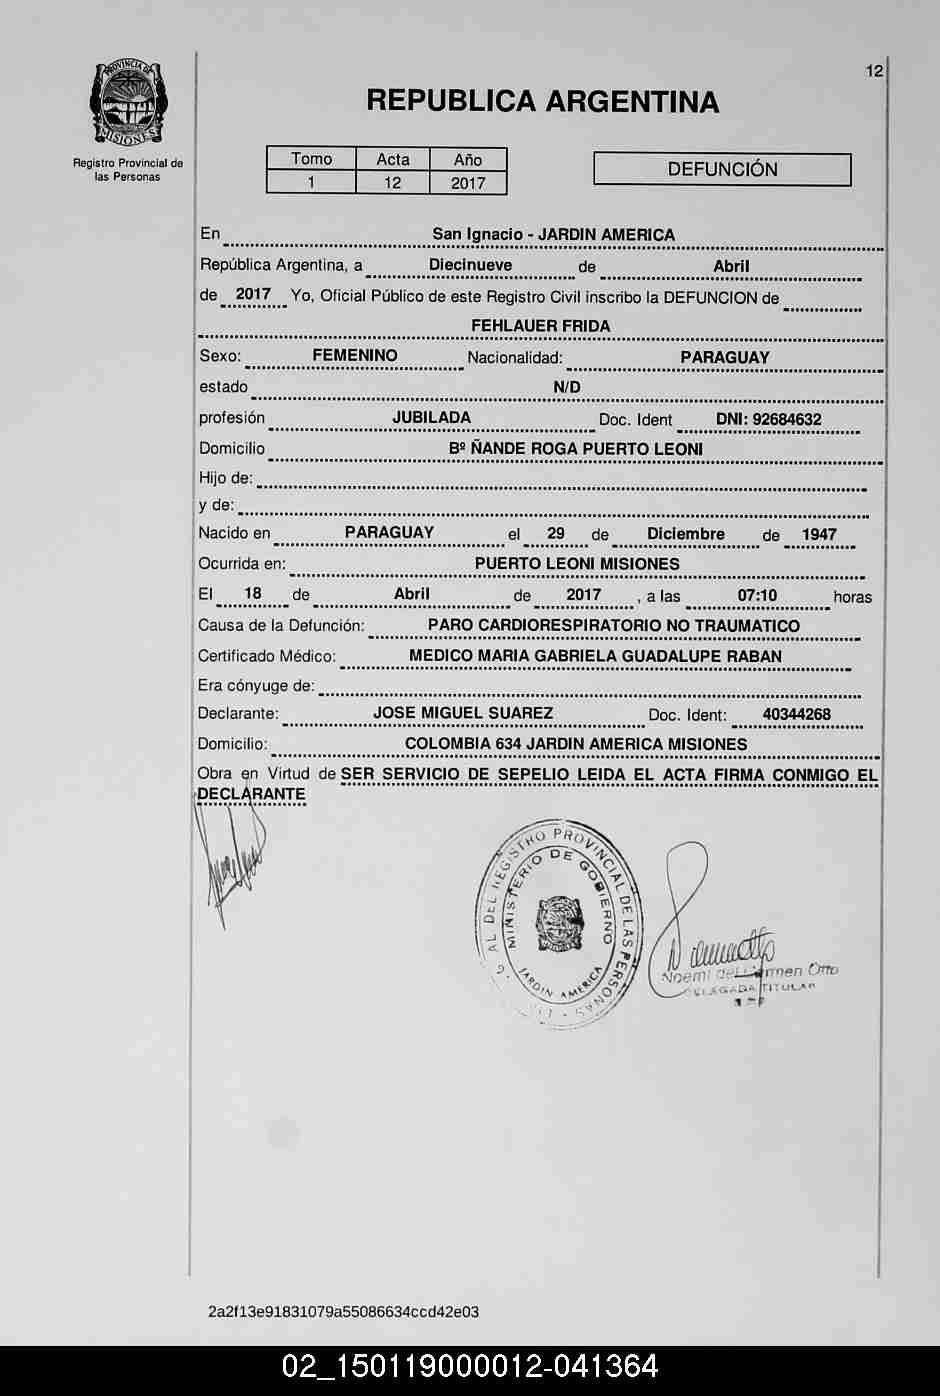 12
PROVINCIA DE
MISIONES
Registro Provincial de
las Personas
REPUBLICA ARGENTINA
Tomo Acta Año
1 12 2017
DEFUNCIÓN
En San Ignacio - JARDIN AMERICA
República Argentina, a Diecinueve de Abril
de 2017 Yo, Oficial Público de este Registro Civil inscribo la DEFUNCION de
FEHLAUER FRIDA
Sexo: FEMENINO Nacionalidad: PARAGUAY
estado N/D
profesión JUBILADA Doc. Ident DNI: 92684632
Domicilio Bº ÑANDE ROGA PUERTO LEONI
Hijo de:
y de:
Nacido en PARAGUAY el 29 de Diciembre de 1947
Ocurrida en: PUERTO LEONI MISIONES
El 18 de Abril de 2017 , a las 07:10 horas
Causa de la Defunción: PARO CARDIORESPIRATORIO NO TRAUMATICO
Certificado Médico: MEDICO MARIA GABRIELA GUADALUPE RABAN
Era cónyuge de:
Declarante: JOSE MIGUEL SUAREZ Doc. Ident: 40344268
Domicilio: COLOMBIA 634 JARDIN AMERICA MISIONES
Obra en Virtud de SER SERVICIO DE SEPELIO LEIDA EL ACTA FIRMA CONMIGO EL
DECLARANTE
AL DEL REGISTRO PROVINCIAL DE LAS PERSONAS
MINISTERIO DE GOBIERNO
JARDIN AMERICA
Noemi del Carmen Otto
DELEGADA TITULAR
2a2f13e91831079a55086634ccd42e03
02_150119000012-041364